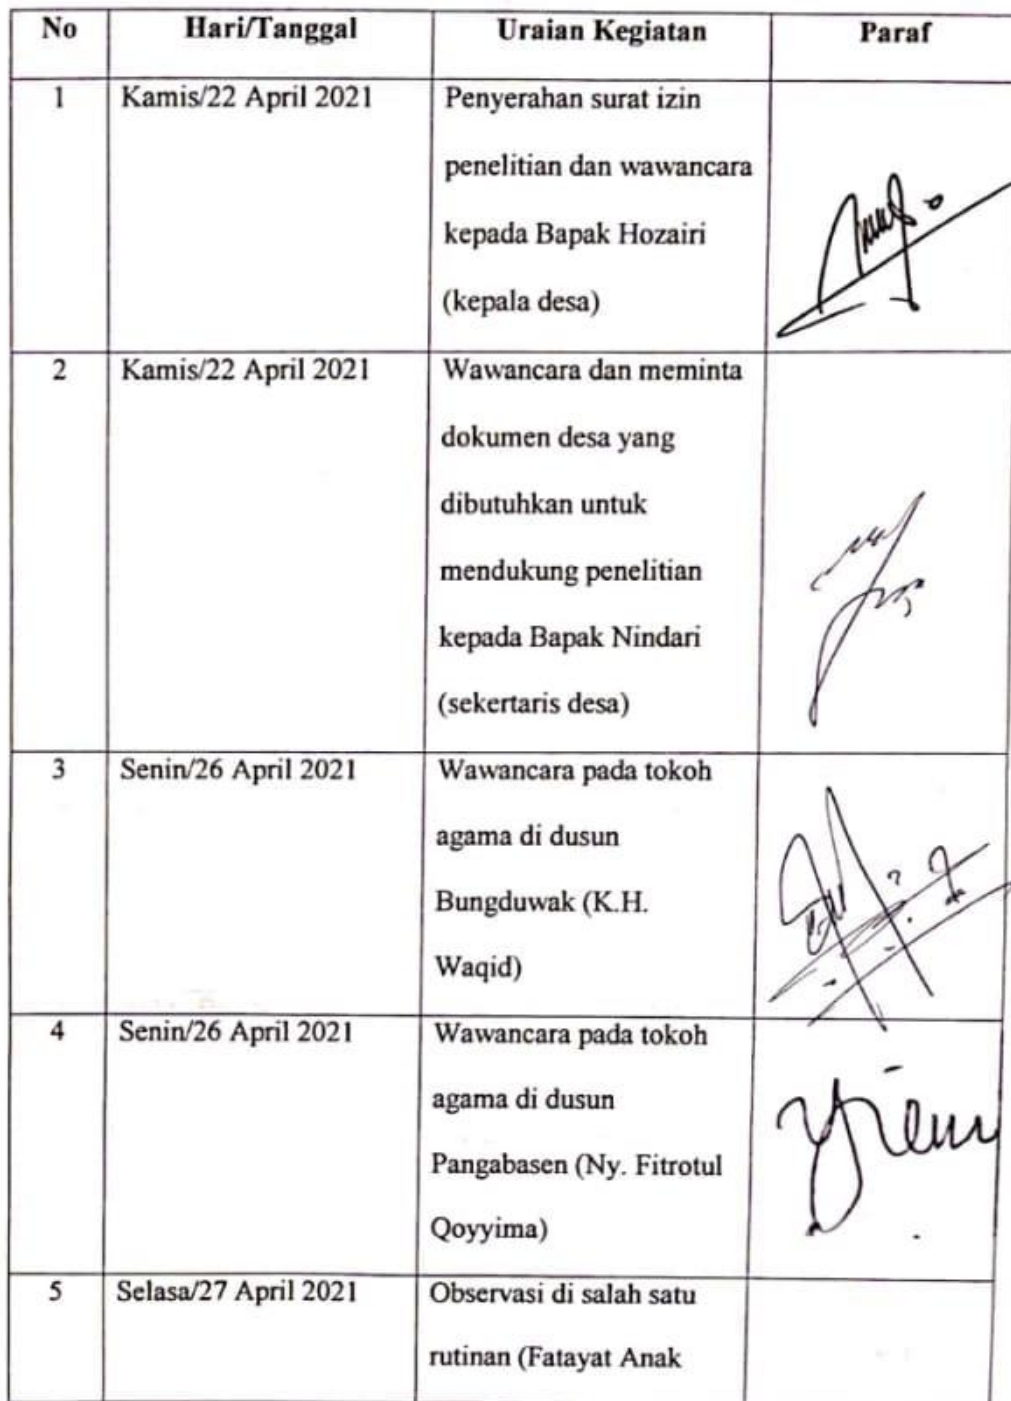 No Hari/Tanggal Uraian Kegiatan Paraf
1 Kamis/22 April 2021 Penyerahan surat izin
penelitian dan wawancara
kepada Bapak Hozairi
(kepala desa)
2 Kamis/22 April 2021 Wawancara dan meminta
dokumen desa yang
dibutuhkan untuk
mendukung penelitian
kepada Bapak Nindari
(sekertaris desa)
3 Senin/26 April 2021 Wawancara pada tokoh
agama di dusun
Bungduwak (K.H.
Waqid)
4 Senin/26 April 2021 Wawancara pada tokoh
agama di dusun
Pangabasen (Ny. Fitrotul
Qoyyima)
5 Selasa/27 April 2021 Observasi di salah satu
rutinan (Fatayat Anak